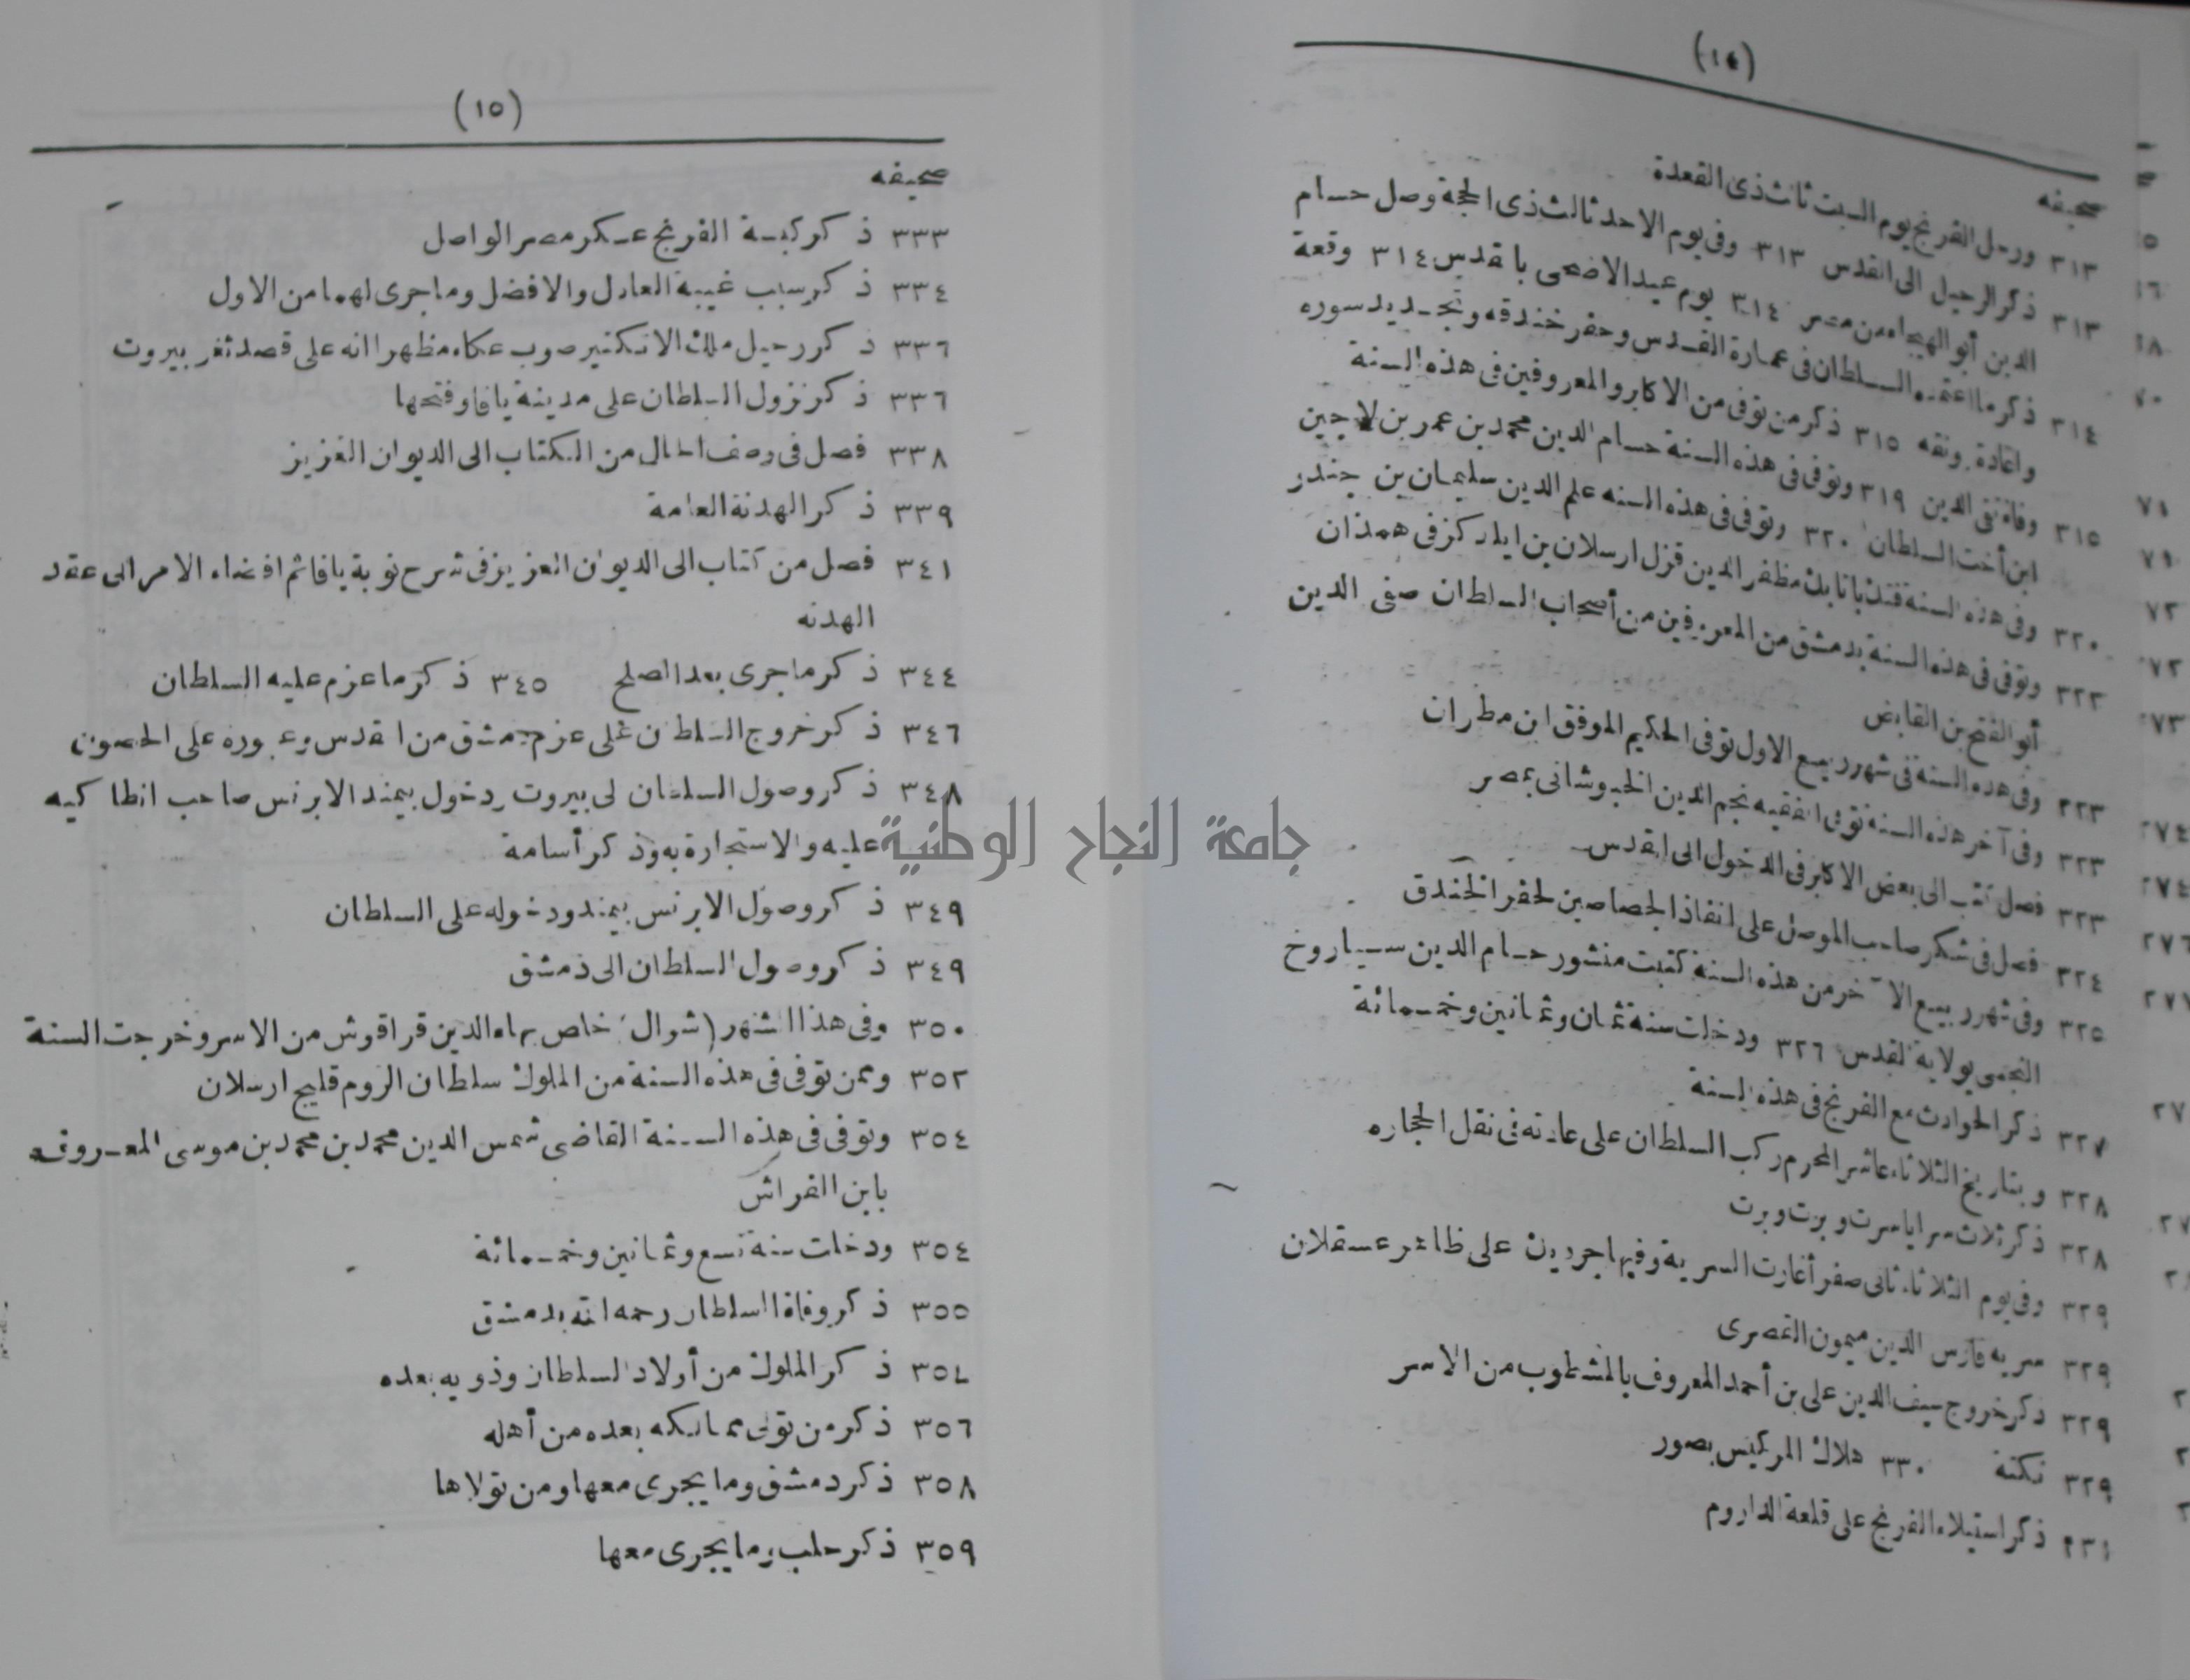 (١٤)
صحيفه
٣١٣ ورحل الفرنج يوم السبت ثالث ذى القعدة
٣١٣ ذكر الرحيل الى القدس ٣١٣ وفى يوم الاحد ثالث ذى الحجة وصل حسام
الدين أبو الهيجاء من مصر ٣١٤ يوم عيد الاضحى بالقدس ٣١٤ وقعة
٣١٤ ذكر ما اعتمده السلطان فى عمارة القدس وحفر خندقه وتجديد سوره
واعادة رونقه ٣١٥ ذكر من توفى من الاكابر والمعروفين فى هذه السنة
٣١٥ وفاة تقى الدين ٣١٩ وتوفى فى هذه السنة حسام الدين محمد بن عمر بن لاجين
ابن أخت السلطان ٣٢٠ وتوفى فى هذه السنه علم الدين سليمان بن جندر
٣٢٠ وفى هذه السنة فتك باتابك مظفر الدين قزل ارسلان بن ايلدكز فى همذان
٣٢٢ وتوفى فى هذه السنة بدمشق من المعروفين من أصحاب السلطان صفى الدين
أبو الفتح بن القابض
٣٢٣ وفى هذه السنة فى شهر ربيع الاول توفى الحكيم الموفق ابن مطران
٣٢٣ وفى آخر هذه السنة توفى الفقيه نجم الدين الخبوشانى بمصر
٣٢٣ فصل كتب الى بعض الاكابر فى الدخول الى القدس
٣٢٤ فصل فى شكر صاحب الموصل على انفاذ الجصاصين لحفر الخندق
٣٢٥ وفى شهر ربيع الآخر من هذه السنة كتبت منشور حسام الدين سياروخ
النجمى بولاية القدس ٣٢٦ ودخلت سنة ثمان وثمانين وخمسمائة
٣٢٧ ذكر الحوادث مع الفرنج فى هذه السنة
٣٢٨ وبتاريخ الثلاثاء عاشر المحرم ركب السلطان على عادته فى نقل الحجاره
٣٢٨ ذكر ثلاث سرايا سرت وبزت وبرت
٣٢٩ وفى يوم الثلاثاء ثانى صفر أغارت السرية وفيها جرديك على ظاهر عسقلان
٣٢٩ سريه فارس الدين ميمون القصرى
٣٢٩ ذكر خروج سيف الدين على بن أحمد المعروف بالمشطوب من الاسر
٣٢٩ نكتة ٣٣٠ هلاك المركيس بصور
٣٣١ ذكر استيلاء الفرنج على قلعة الداروم
(١٥)
صحيفه
٣٣٣ ذكر كبسة الفرنج عسكر مصر الواصل
٣٣٤ ذكر سبب غيبة العادل والافضل وما جرى لهما من الاول
٣٣٦ ذكر رحيل ملك الانكتير صوب عكاء مظهرا انه على قصد ثغر بيروت
٣٣٦ ذكر نزول السلطان على مدينة يافا وفتحها
٣٣٨ فصل فى وصف الحال من الكتاب الى الديوان العزيز
٣٣٩ ذكر الهدنة العامة
٣٤١ فصل من كتاب الى الديوان العزيز فى شرح نوبة يافا ثم افضاء الامر الى عقد
الهدنه
٣٤٤ ذكر ما جرى بعد الصلح ٣٤٥ ذكر ما عزم عليه السلطان
٣٤٦ ذكر خروج السلطان على عزم دمشق من القدس وعبوره على الحصون
٣٤٨ ذكر وصول السلطان الى بيروت ودخول بيمند الابرنس صاحب انطاكيه
عليه والاستجارة به وذكر أسامة
جامعة النجاح الوطنية
٣٤٩ ذكر وصول الابرنس بيمند ودخوله على السلطان
٣٤٩ ذكر وصول السلطان الى دمشق
٣٥٠ وفى هذا الشهر (شوال) خلص بهاء الدين قراقوش من الاسر وخرجت السنة
٣٥٢ وممن توفى فى هذه السنة من الملوك سلطان الروم قليج ارسلان
٣٥٤ وتوفى فى هذه السنة القاضى شمس الدين محمد بن محمد بن موسى المعروف
بابن الفراش
٣٥٤ ودخلت سنة تسع وثمانين وخمسمائة
٣٥٥ ذكر وفاة السلطان رحمه الله بدمشق
ذكر الملوك من أولاد السلطان وذويه بعده
٣٥٦ ذكر من تولى ممالكه بعده من أهله
٣٥٨ ذكر دمشق وما يجرى معها ومن تولاها
٣٥٩ ذكر حلب وما يجرى معها